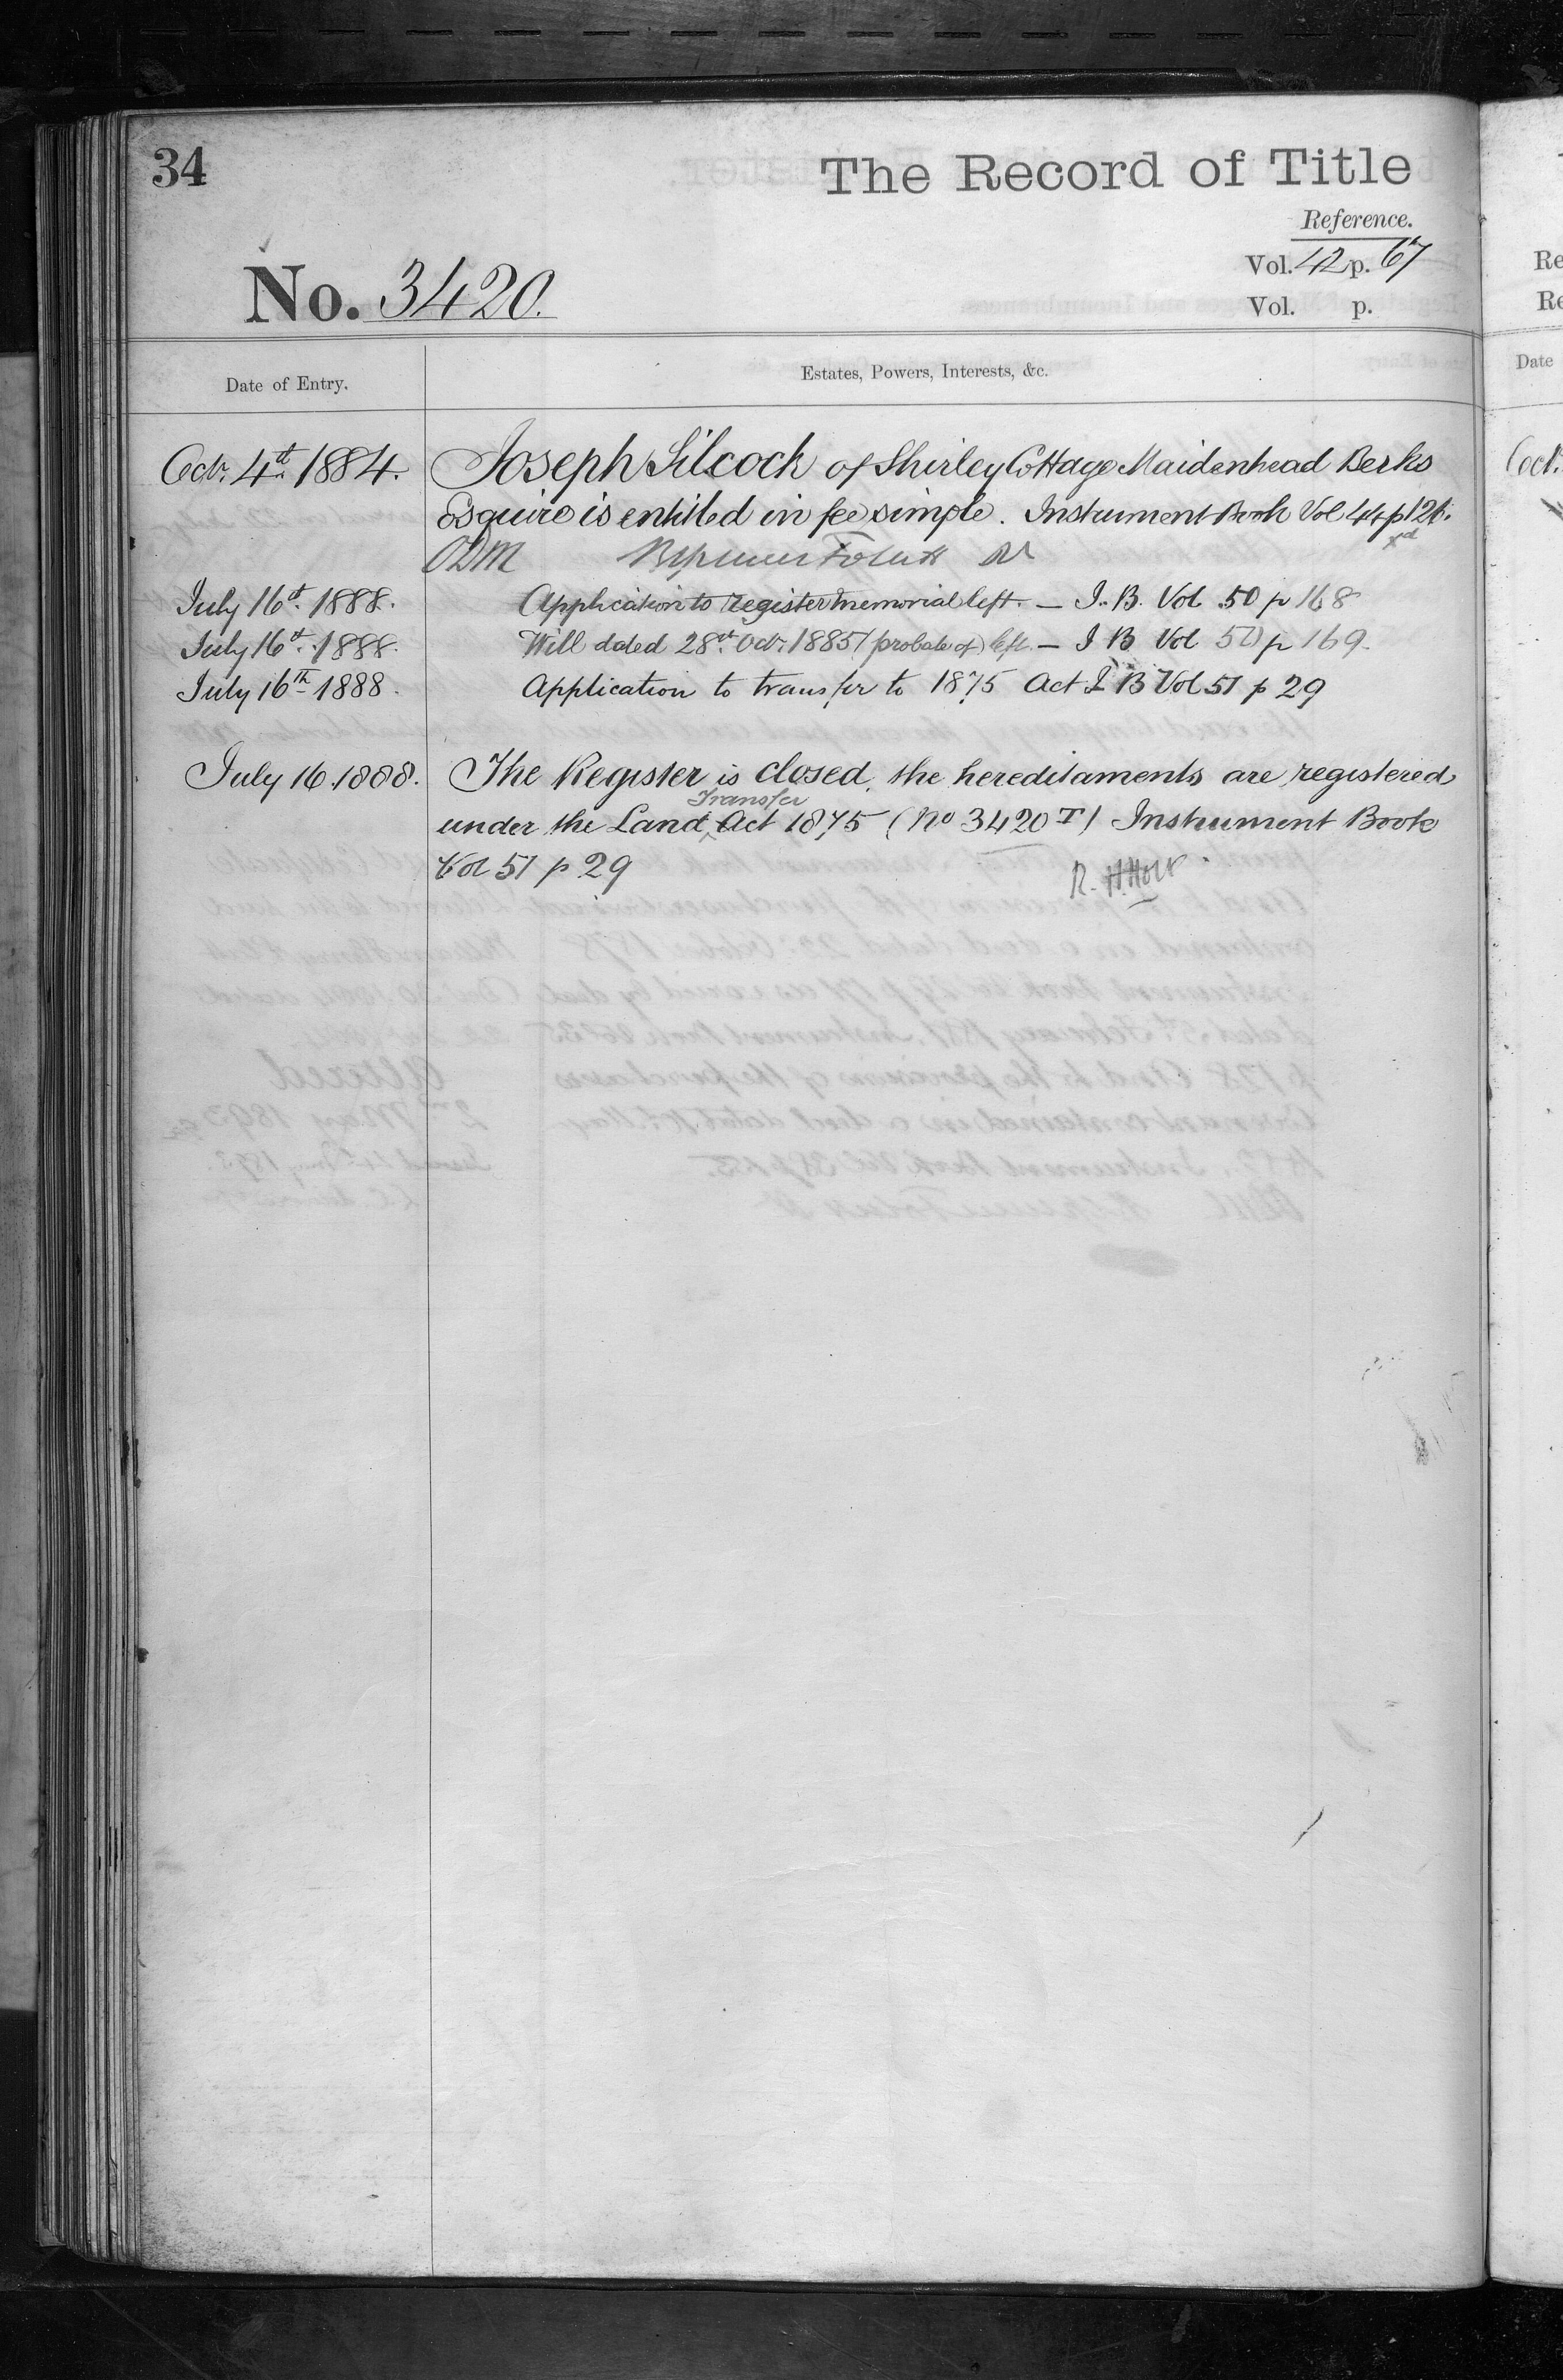 34
The Record of Title
Reference.
Vol. 42 p. 67
No. 3420.
Vol. p.
Date of Entry.
Estates, Powers, Interests, &c.
Octr. 4th 1884.
Joseph Silcock of Shirley Cottage Maidenhead Berks
Esquire is entitled in fee simple. Instrument Book Vol 44 p 126.
July 16th. 1888.
Application to register memorial left. — I.B. Vol. 50 p 168
July 16th. 1888.
Will dated 28th. Octr. 1885 (probate of) left. — I B Vol 50 p 169.
July 16th 1888.
Application to transfer to 1875 Act I B Vol 51 p 29
July 16. 1888.
The Register is closed, the hereditaments are registered
Transfer
under the Land Act 1875 (No 3420 T) Instrument Book
Vol 51 p 29
R. H. Holt
Re
Re
Date
Oct.